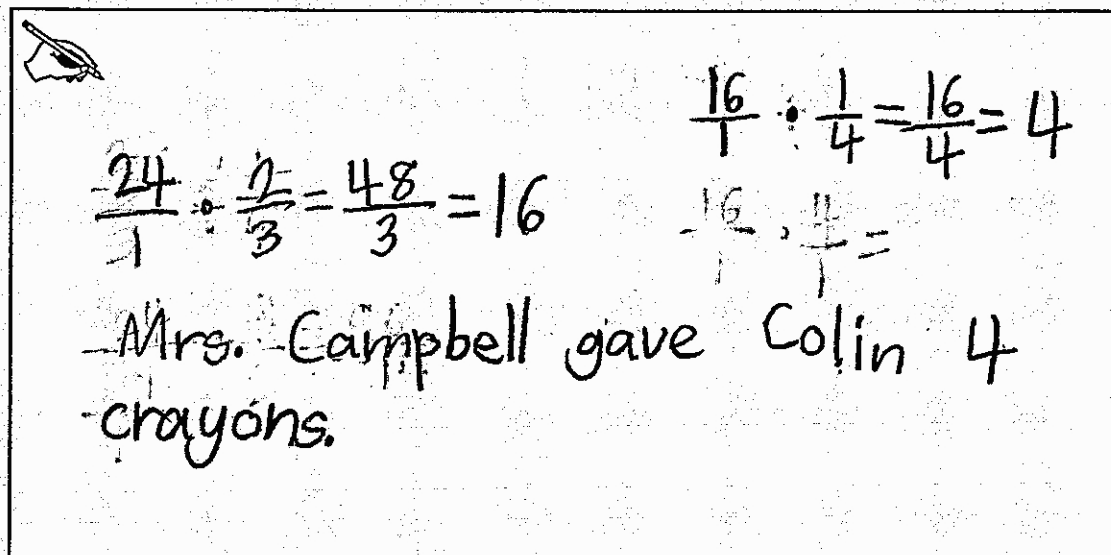 16/1 · 1/4 = 16/4 = 4
24/1 · 2/3 = 48/3 = 16
16/1 · 4/1 =
Mrs. Campbell gave Colin 4
crayons.